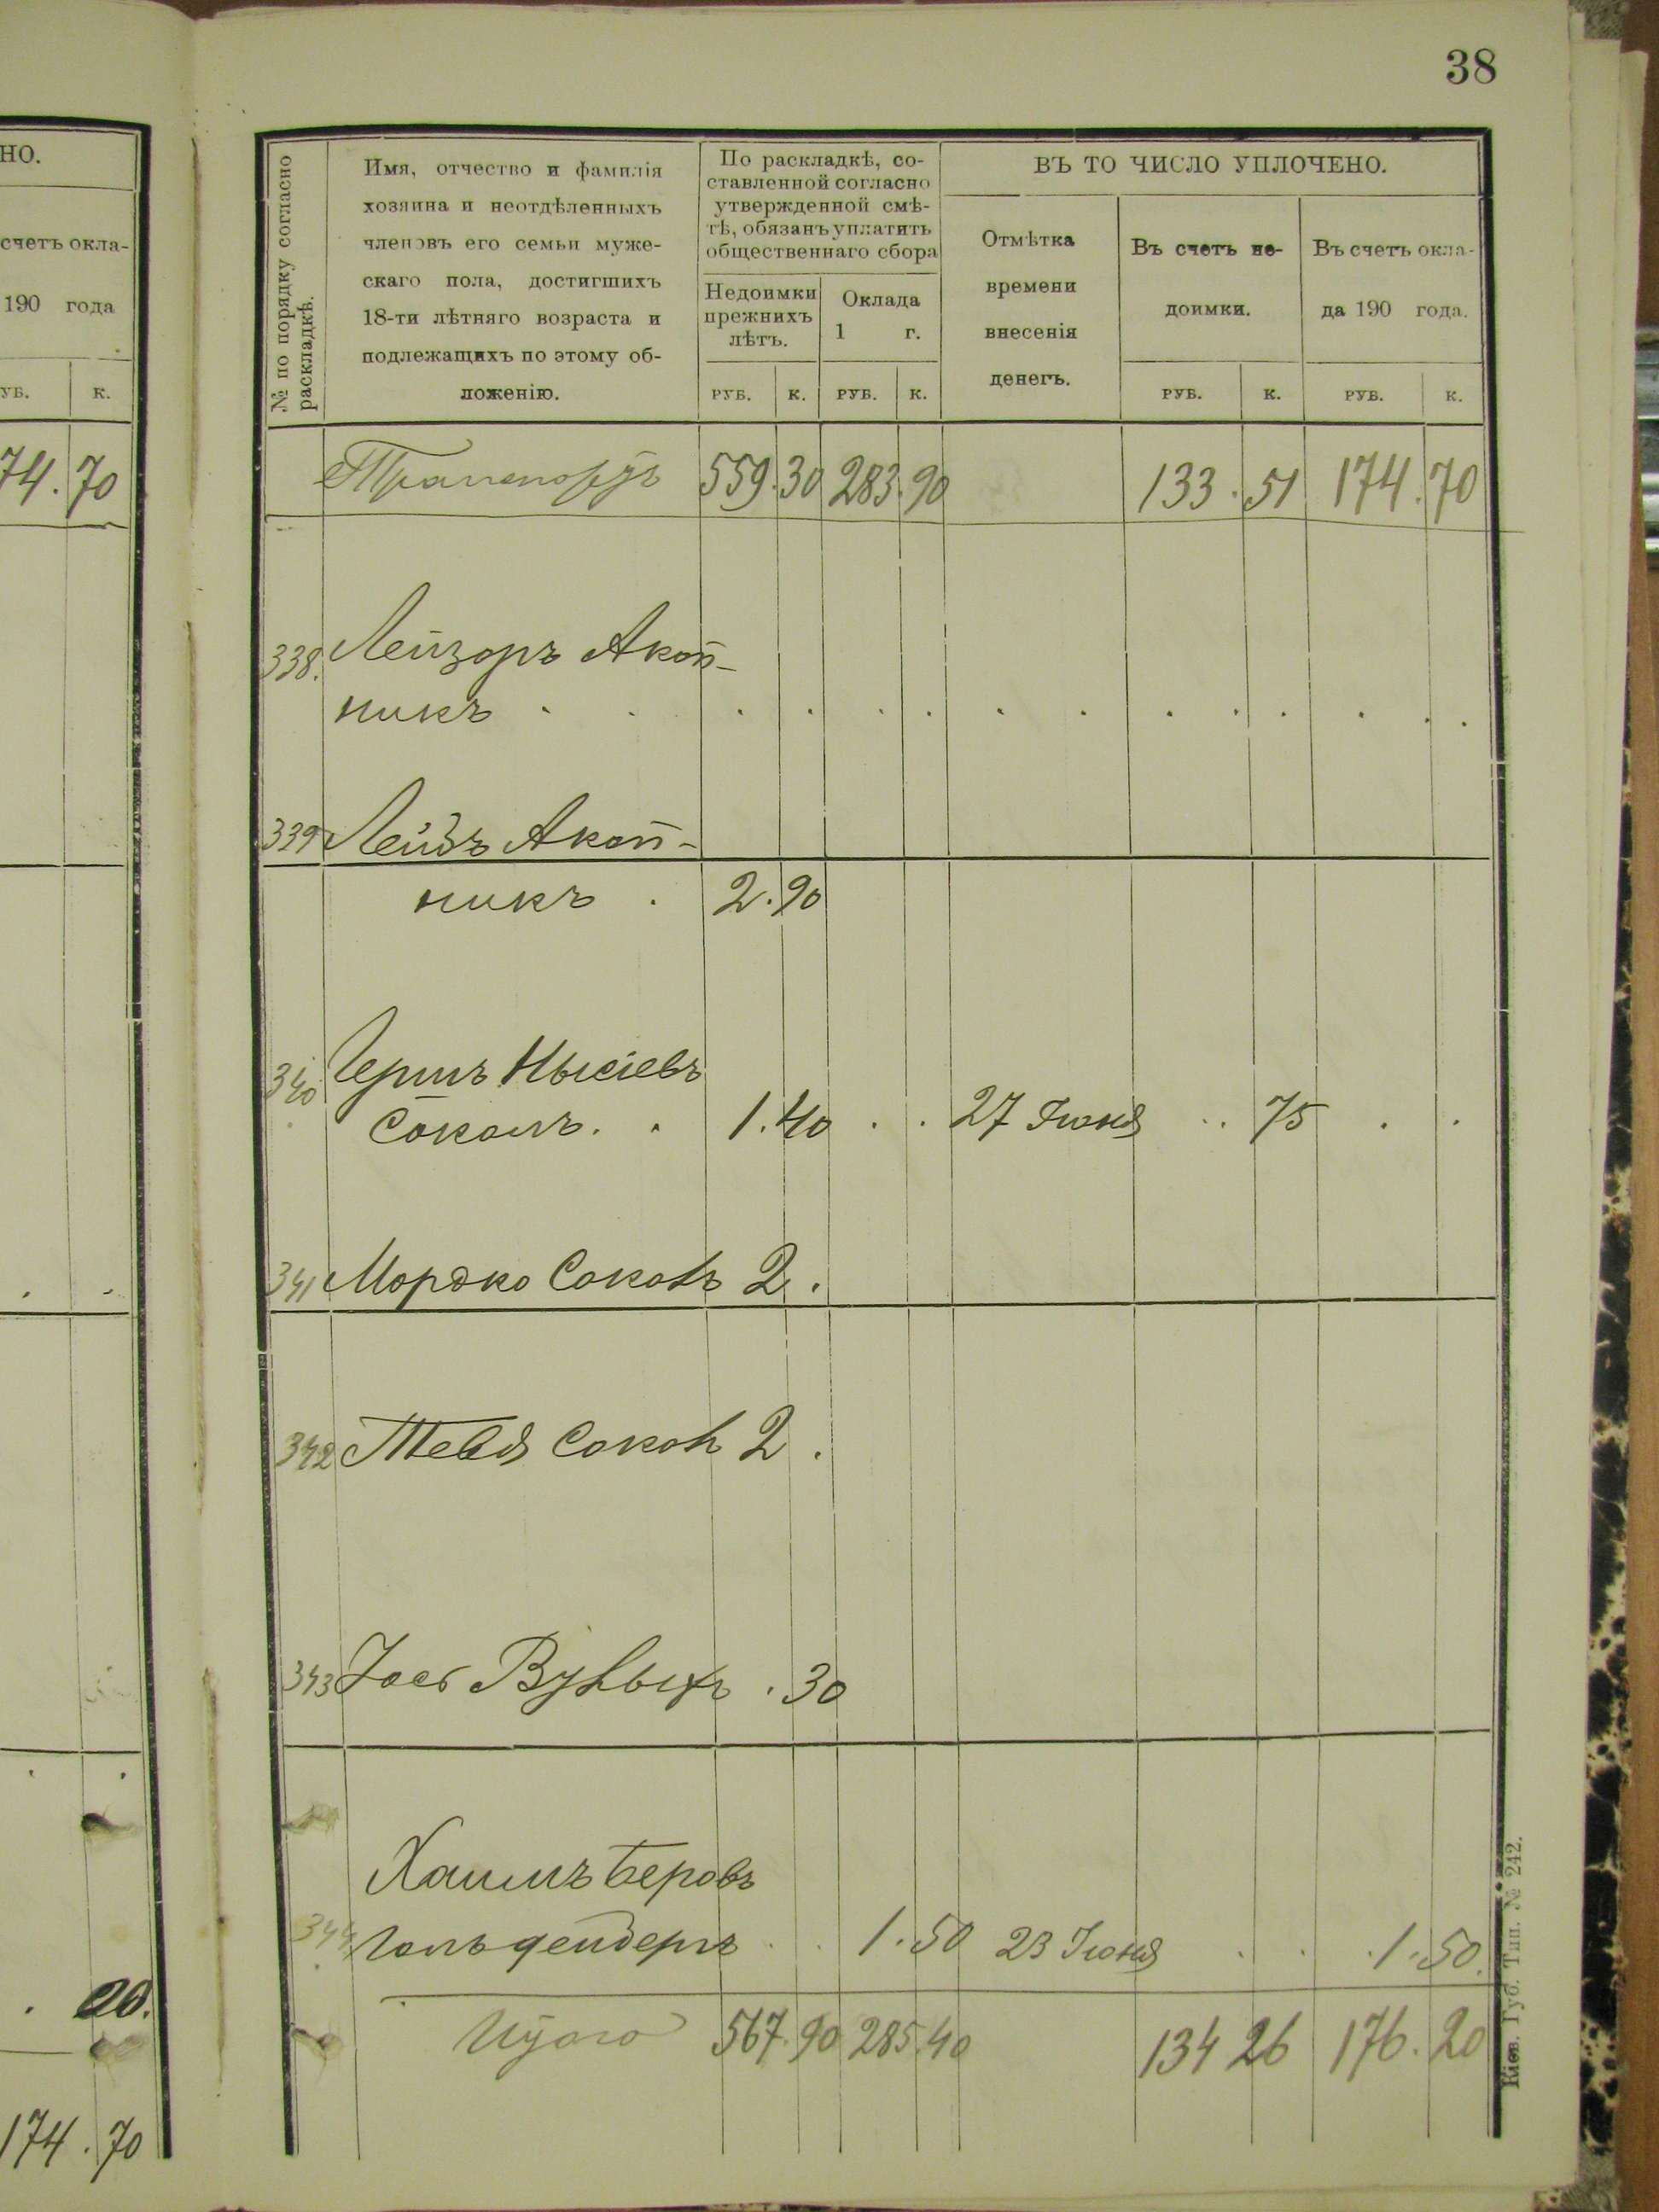 38
но.
счетъ окла-
190 года
уб. к.
74. 70
20.
174. 70
№ по порядку согласно раскладкѣ.
Имя, отчество и фамилія
хозяина и неотдѣленныхъ
членовъ его семьи муже-
скаго пола, достигшихъ
18-ти лѣтняго возраста и
подлежащихъ по этому об-
ложенію.
По раскладкѣ, со-
ставленной согласно
утвержденной смѣ-
тѣ, обязанъ уплатить
общественнаго сбора
Недоимки
прежнихъ
лѣтъ.
Оклада
1 г.
ВЪ ТО ЧИСЛО УПЛОЧЕНО.
Отмѣтка
времени
внесенія
денегъ.
Въ счетъ не-
доимки.
Въ счетъ окла-
да 190 года.
РУБ. К. РУБ. К. РУБ. К. РУБ. К.
Транспортъ 559. 30 283. 90 133. 51 174. 70
338. Лейзоръ Акоп-
никъ . . . . . . . . . . . . . .
339 Лейбъ Акоп-
никъ . 2. 90
340 Гершъ Нысіевъ
Соколъ. . 1. 40 . . 27 Іюня . . 75 . .
341 Мордко Соколъ 2 .
342 Тевя Сокол 2 .
343 Іось Вулыхъ . 30
Хаимъ Беровъ
344 . . 1. 50 23 Іюня . . . 1. 50.
Итого 567. 90 285. 40 134 26 176. 20
Кіев. Губ. Тип. № 242.